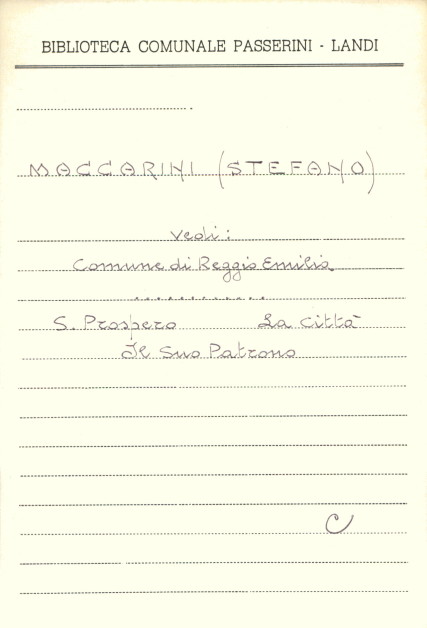 BIBLIOTECA COMUNALE PASSERINI - LANDI
MACCARINI (STEFANO)
Vedi:
Comune di Reggio Emilia.
............
S. Prospero La Città
Il Suo Patrono
C